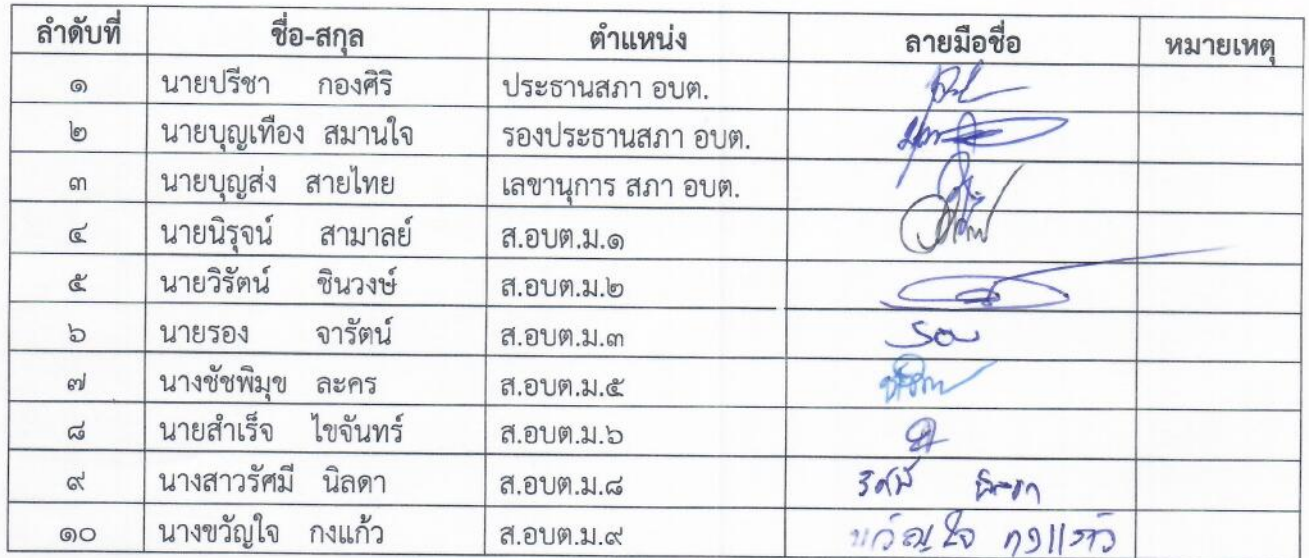 ลำดับที่ ชื่อ-สกุล ตำแหน่ง ลายมือชื่อ หมายเหตุ
๑ นายปรีชา กองศิริ ประธานสภา อบต.
๒ นายบุญเทือง สมานใจ รองประธานสภา อบต.
๓ นายบุญส่ง สายไทย เลขานุการ สภา อบต.
๔ นายนิรุจน์ สามาลย์ ส.อบต.ม.๑
๕ นายวิรัตน์ ชินวงษ์ ส.อบต.ม.๒
๖ นายรอง จารัตน์ ส.อบต.ม.๓ รอง
๗ นางชัชพิมุข ละคร ส.อบต.ม.๕
๘ นายสำเร็จ ไขจันทร์ ส.อบต.ม.๖
๙ นางสาวรัศมี นิลดา ส.อบต.ม.๘ รัศมี นิลดา
๑๐ นางขวัญใจ กงแก้ว ส.อบต.ม.๙ ขวัญใจ กงแก้ว